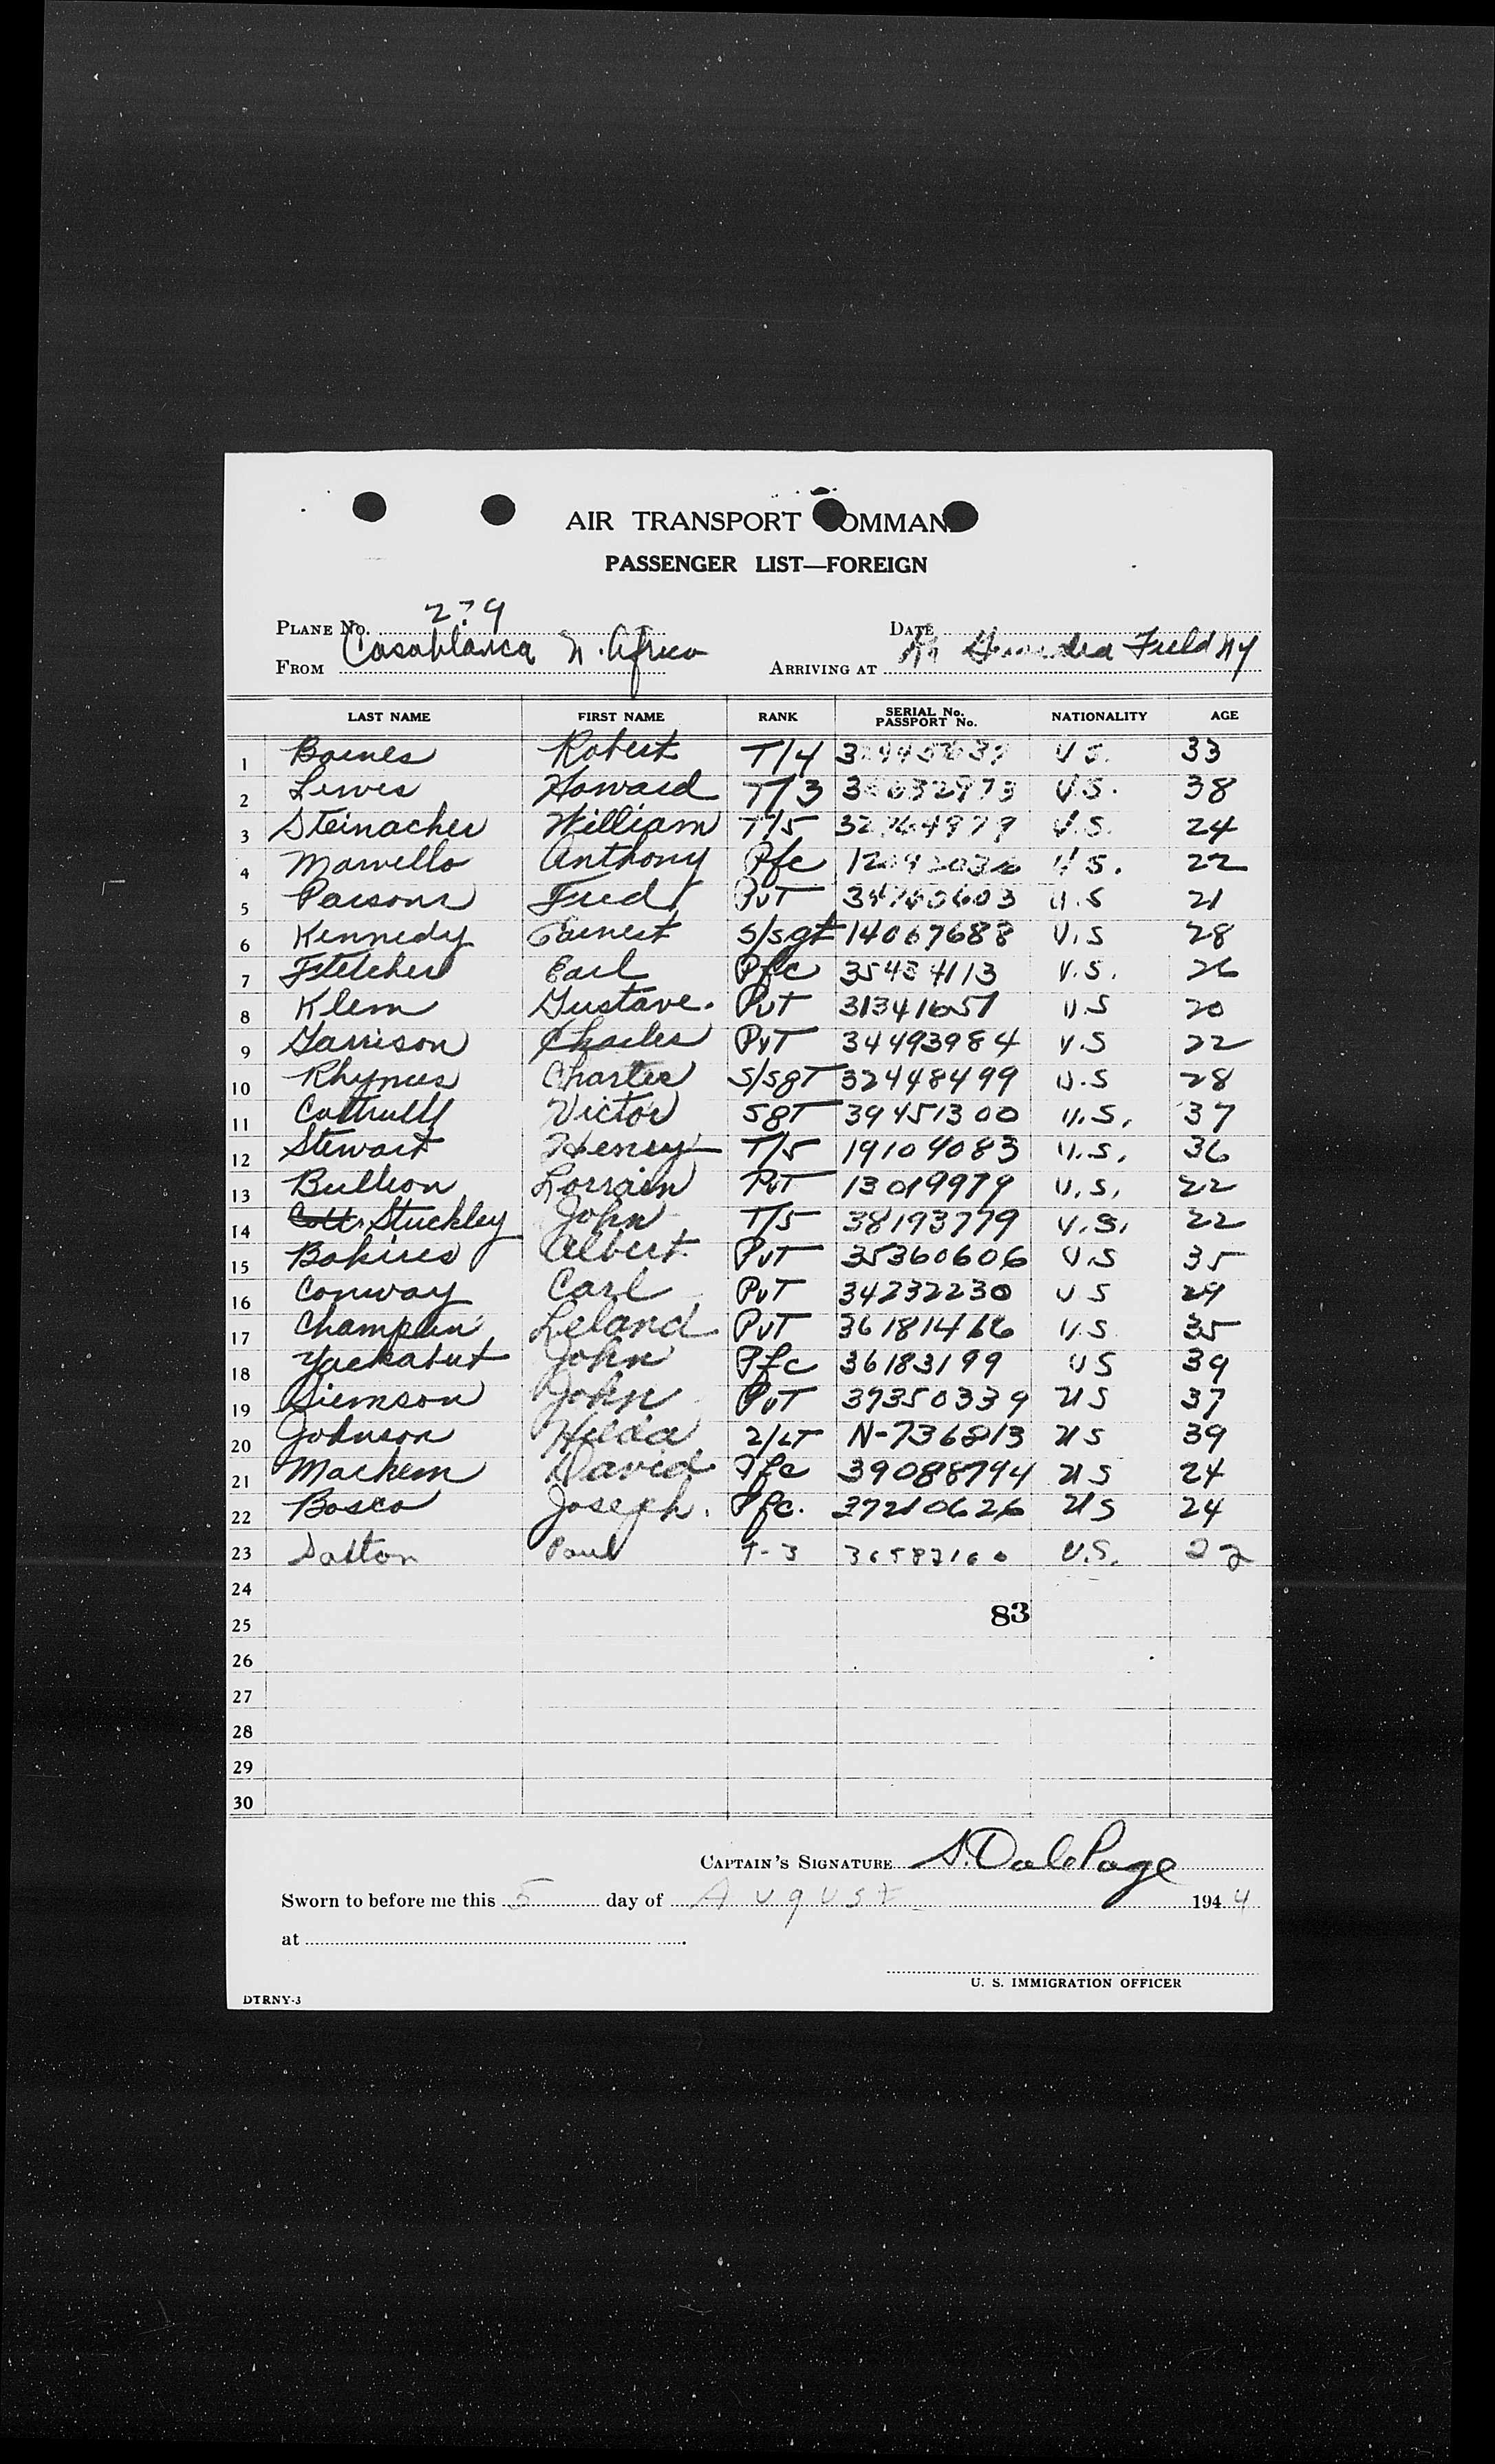 AIR TRANSPORT COMMAND
PASSENGER LIST—FOREIGN
PLANE No. DATE
FROM Casablanca N. Africa ARRIVING AT Field NY
LAST NAME FIRST NAME RANK SERIAL No. PASSPORT No. NATIONALITY AGE
1 Baines Robert T/4 U.S. 33
2 Lewis Howard T/3 U.S. 38
3 Steinacher William T/5 U.S. 24
4 Marvello Anthony Pfc U.S. 22
5 Parsons Fred PvT U.S 21
6 Kennedy Earnest S/sgt 14067688 U.S 28
7 Fletcher Earl Pfc U.S. 26
8 Klem Gustave. PvT U.S 20
9 Garrison Charles PvT 34493984 U.S 22
10 Rhymes Charter S/SgT 32448499 U.S 28
11 Victor SgT 39451300 U.S. 37
12 Stewart Henry T/5 19104083 U.S. 36
13 Bullion Lorrain PvT 13019979 U.S. 22
14 Stuckley John T/5 38193779 U.S. 22
15 Albert PvT 35360606 U.S 35
16 Conway Carl PvT 34232230 U S 29
17 Champlin Leland PvT U.S 35
18 John Pfc 36183199 US 39
19 Siemson John PvT 39350339 US 37
20 Johnson Hilda 2/LT N-736813 US 39
21 Machem David Pfc 39088794 US 24
22 Bosco Joseph. Pfc. 37210626 US 24
23 Dalton Paul T-3 U.S. 22
24
25 83
26
27
28
29
30
CAPTAIN'S SIGNATURE S. Dale Page
Sworn to before me this 5 day of August 194 4
at
U. S. IMMIGRATION OFFICER
DTRNY-3